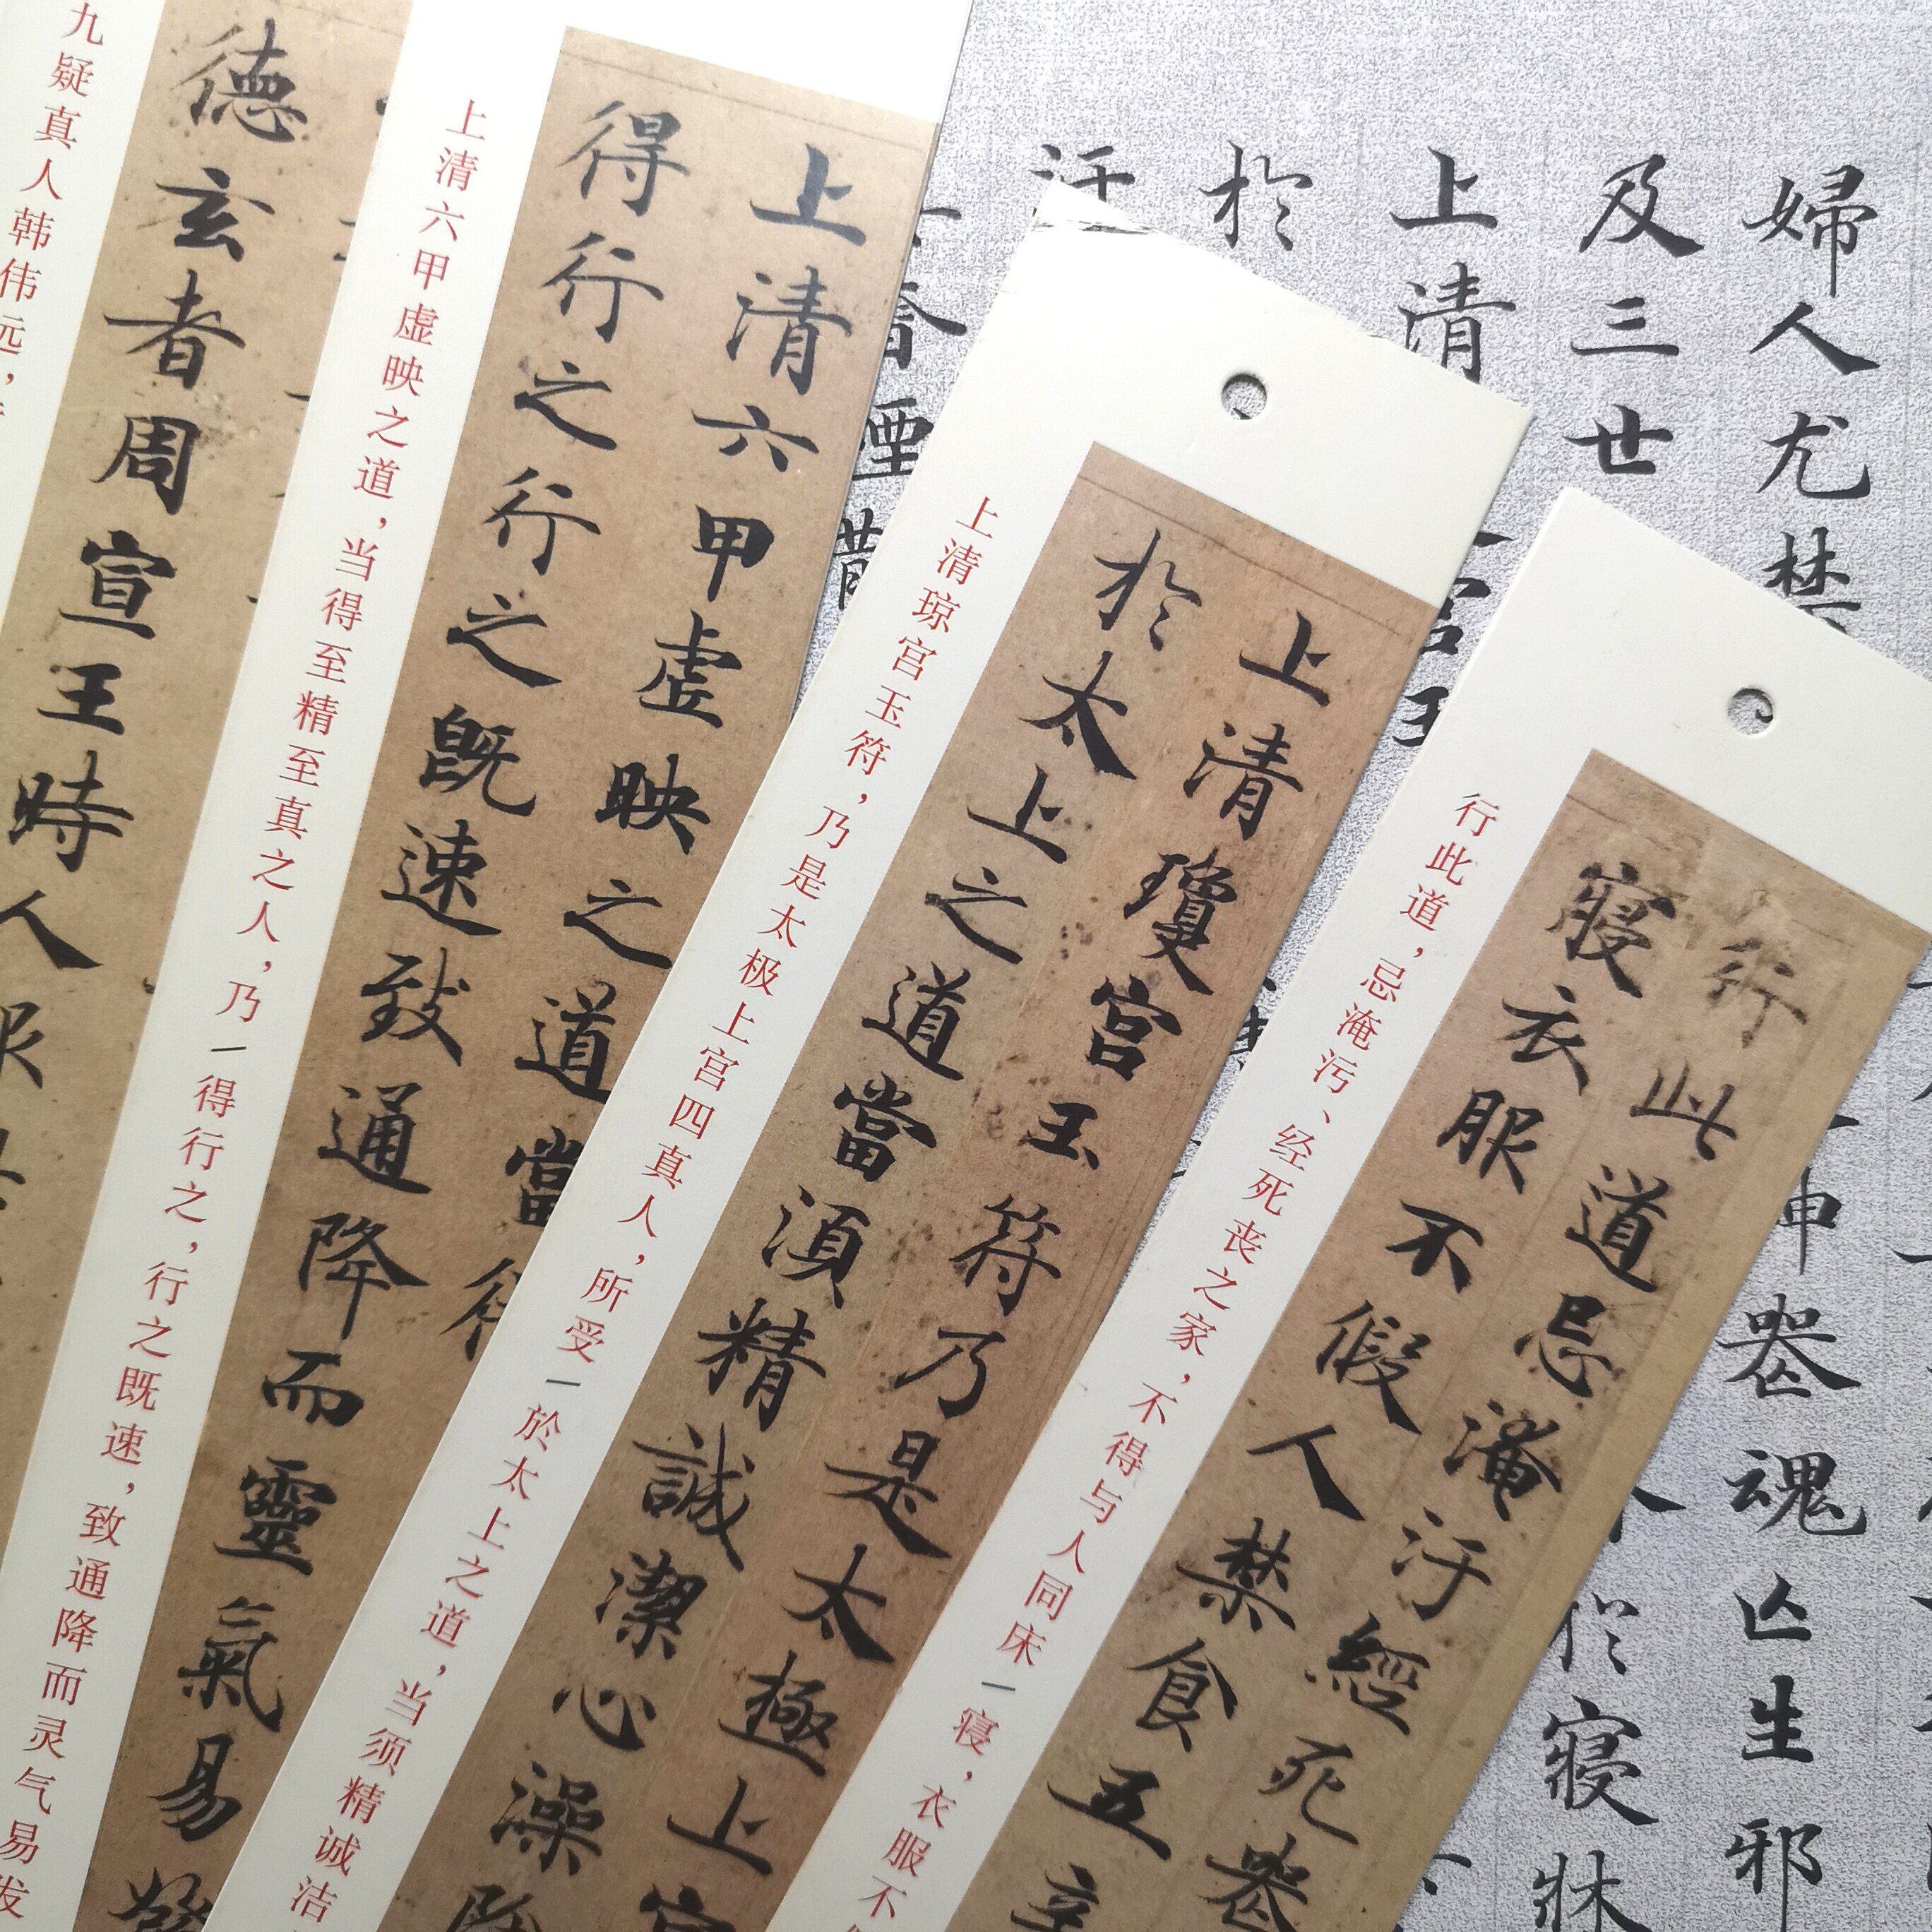 九疑真人韩伟远，
德玄者周宣王時人服
上清六甲虚映之道，当得至精至真之人，乃一得行之，行之既速，致通降而灵气易发
上清六甲虚映之道當得
得行之行之既速致通降而靈氣易發
上清琼宫玉符，乃是太极上宫四真人，所受一於太上之道，当须精诚洁
上清瓊宮玉符乃是太極上宮
於太上之道當湏精誠潔心澡除
行此道，忌淹污、经死丧之家，不得与人同床一寝，衣服不
行此道忌淹汙經死喪
寢衣服不假人禁食五辛
婦人尤禁
神喪魂亡生邪
及三世
寢牀
上清
宮玉
於
汙